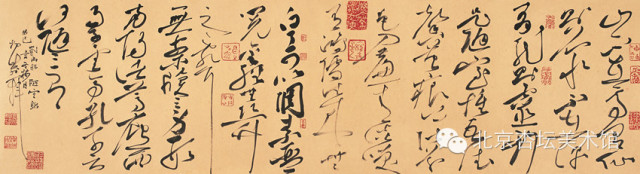 山不在高有仙
则名水不在深
有龙则灵斯
是陋室惟吾德
馨苔痕上阶绿
草色入帘青谈
笑有鸿儒往来无
白丁可以调素琴
阅金经无丝竹
之乱耳
无案牍之劳形
南阳诸葛庐西
蜀子云亭孔子云
何陋之有
刘禹锡陋室铭
北京杏坛美术馆